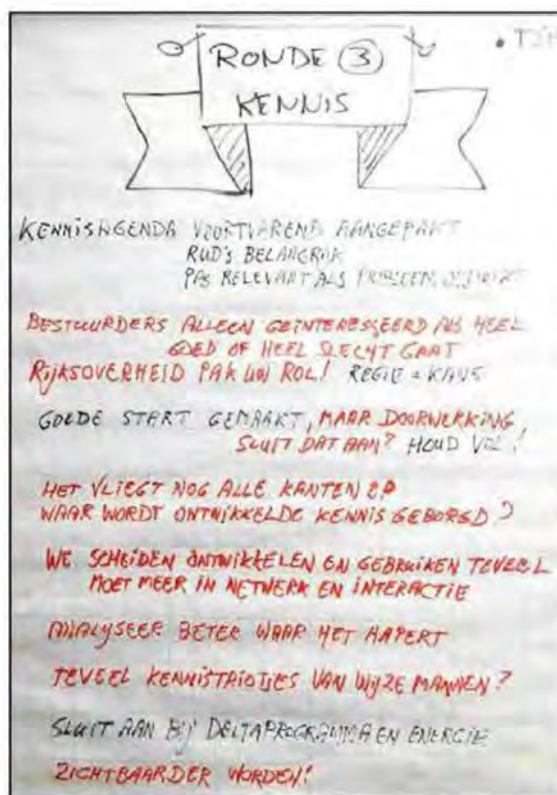 RONDE ③
KENNIS
KENNISAGENDA VOORTVAREND AANGEPAKT
RUD'S BELANGRIJK
PAS RELEVANT ALS PROBLEEM
BESTUURDERS ALLEEN GEÏNTERESSEERD ALS HEEL
GOED OF HEEL SLECHT GAAT
RIJKSOVERHEID PAK UW ROL! REGIE = KANS
GOEDE START GEMAAKT, MAAR DOORWERKING
SLUIT DAT AAN? HOUD VOL!
HET VLIEGT NOG ALLE KANTEN OP
WAAR WORDT ONTWIKKELDE KENNIS GEBORGD?
WE SCHEIDEN ONTWIKKELEN EN GEBRUIKEN TEVEEL
MOET MEER IN NETWERK EN INTERACTIE
ANALYSEER BETER WAAR HET HAPERT
TEVEEL KENNISTRIOTJES VAN WIJZE MANNEN?
SLUIT AAN BIJ DELTAPROGRAMMA EN ENERGIE
ZICHTBAARDER WORDEN!